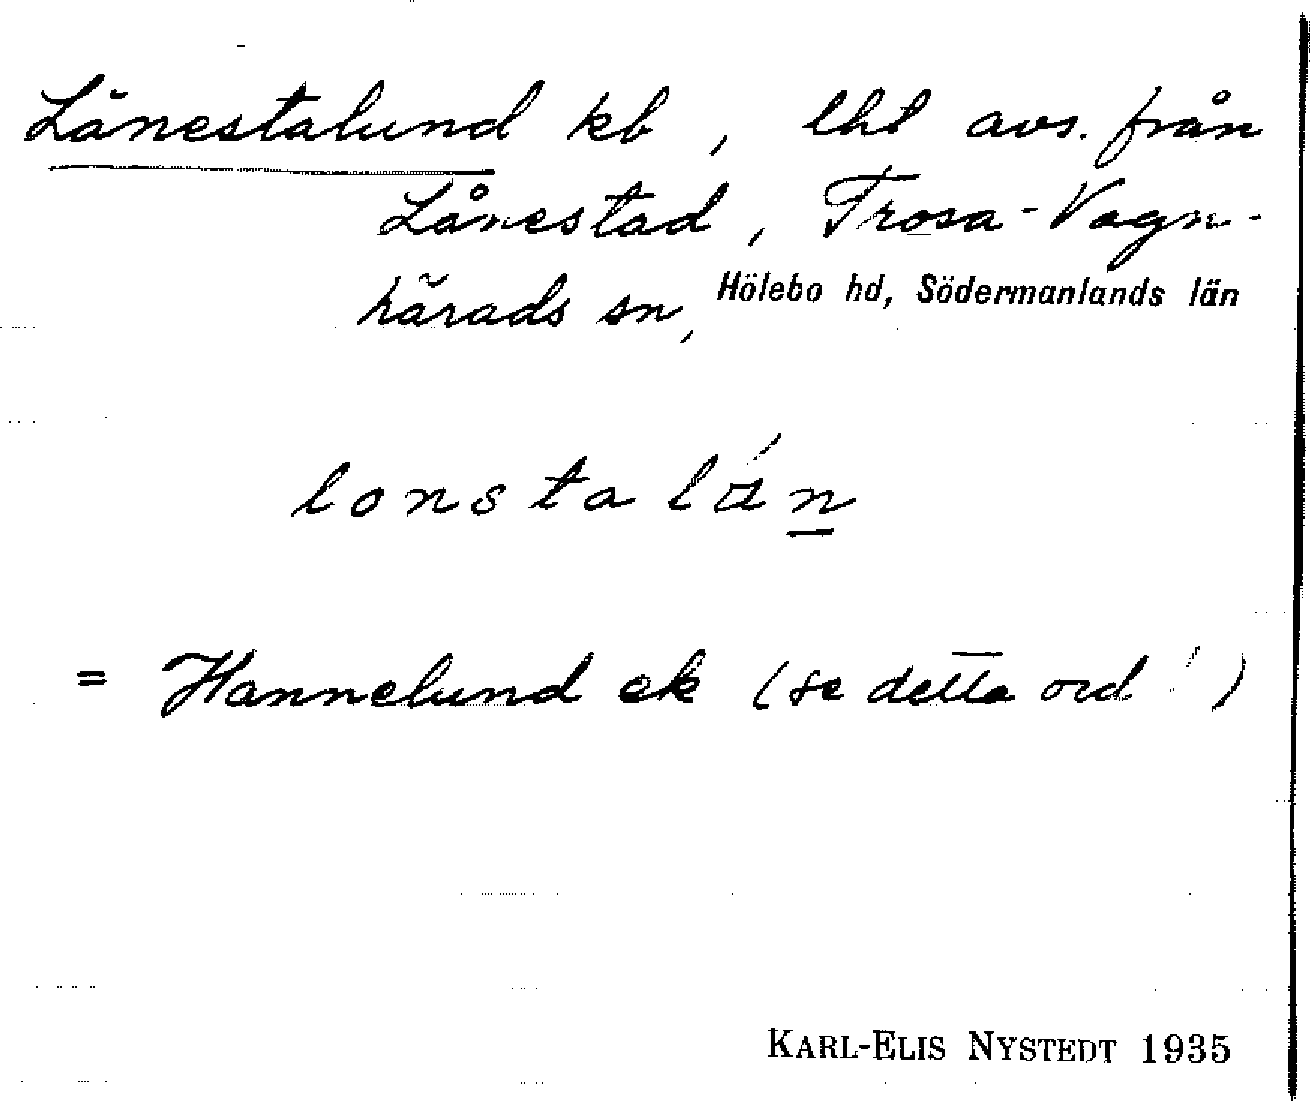 Lånestalund kb, lht avs. från
Lånestad, Trosa-Vagn-
härads sn, Hölebo hd, Södermanlands län
lonstalán
= Hannelund ek (se detta ord)
KARL-ELIS NYSTEDT 1935